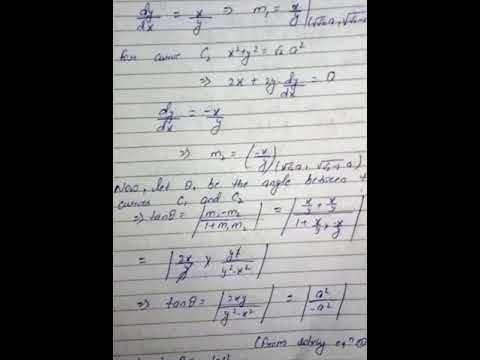 dy/dx = x/y ⇒ m₁ = x/y |(√√2+1 a, √√2-1
For curve C₂ x²+y² = √2 a²
⇒ 2x + 2y dy/dx = 0
dy/dx = -x/y
⇒ m₂ = (-x/y)
Now, let θ, be the angle between
curves C₁ and C₂
⇒ tanθ = |m₁-m₂/1+m₁m₂| = |x/y + x/y / 1+x/y · x/y|
= |2x/y × y²/y²-x²|
⇒ tanθ = |2xy/y²-x²| = |a²/-a²|
(from solving eqⁿ